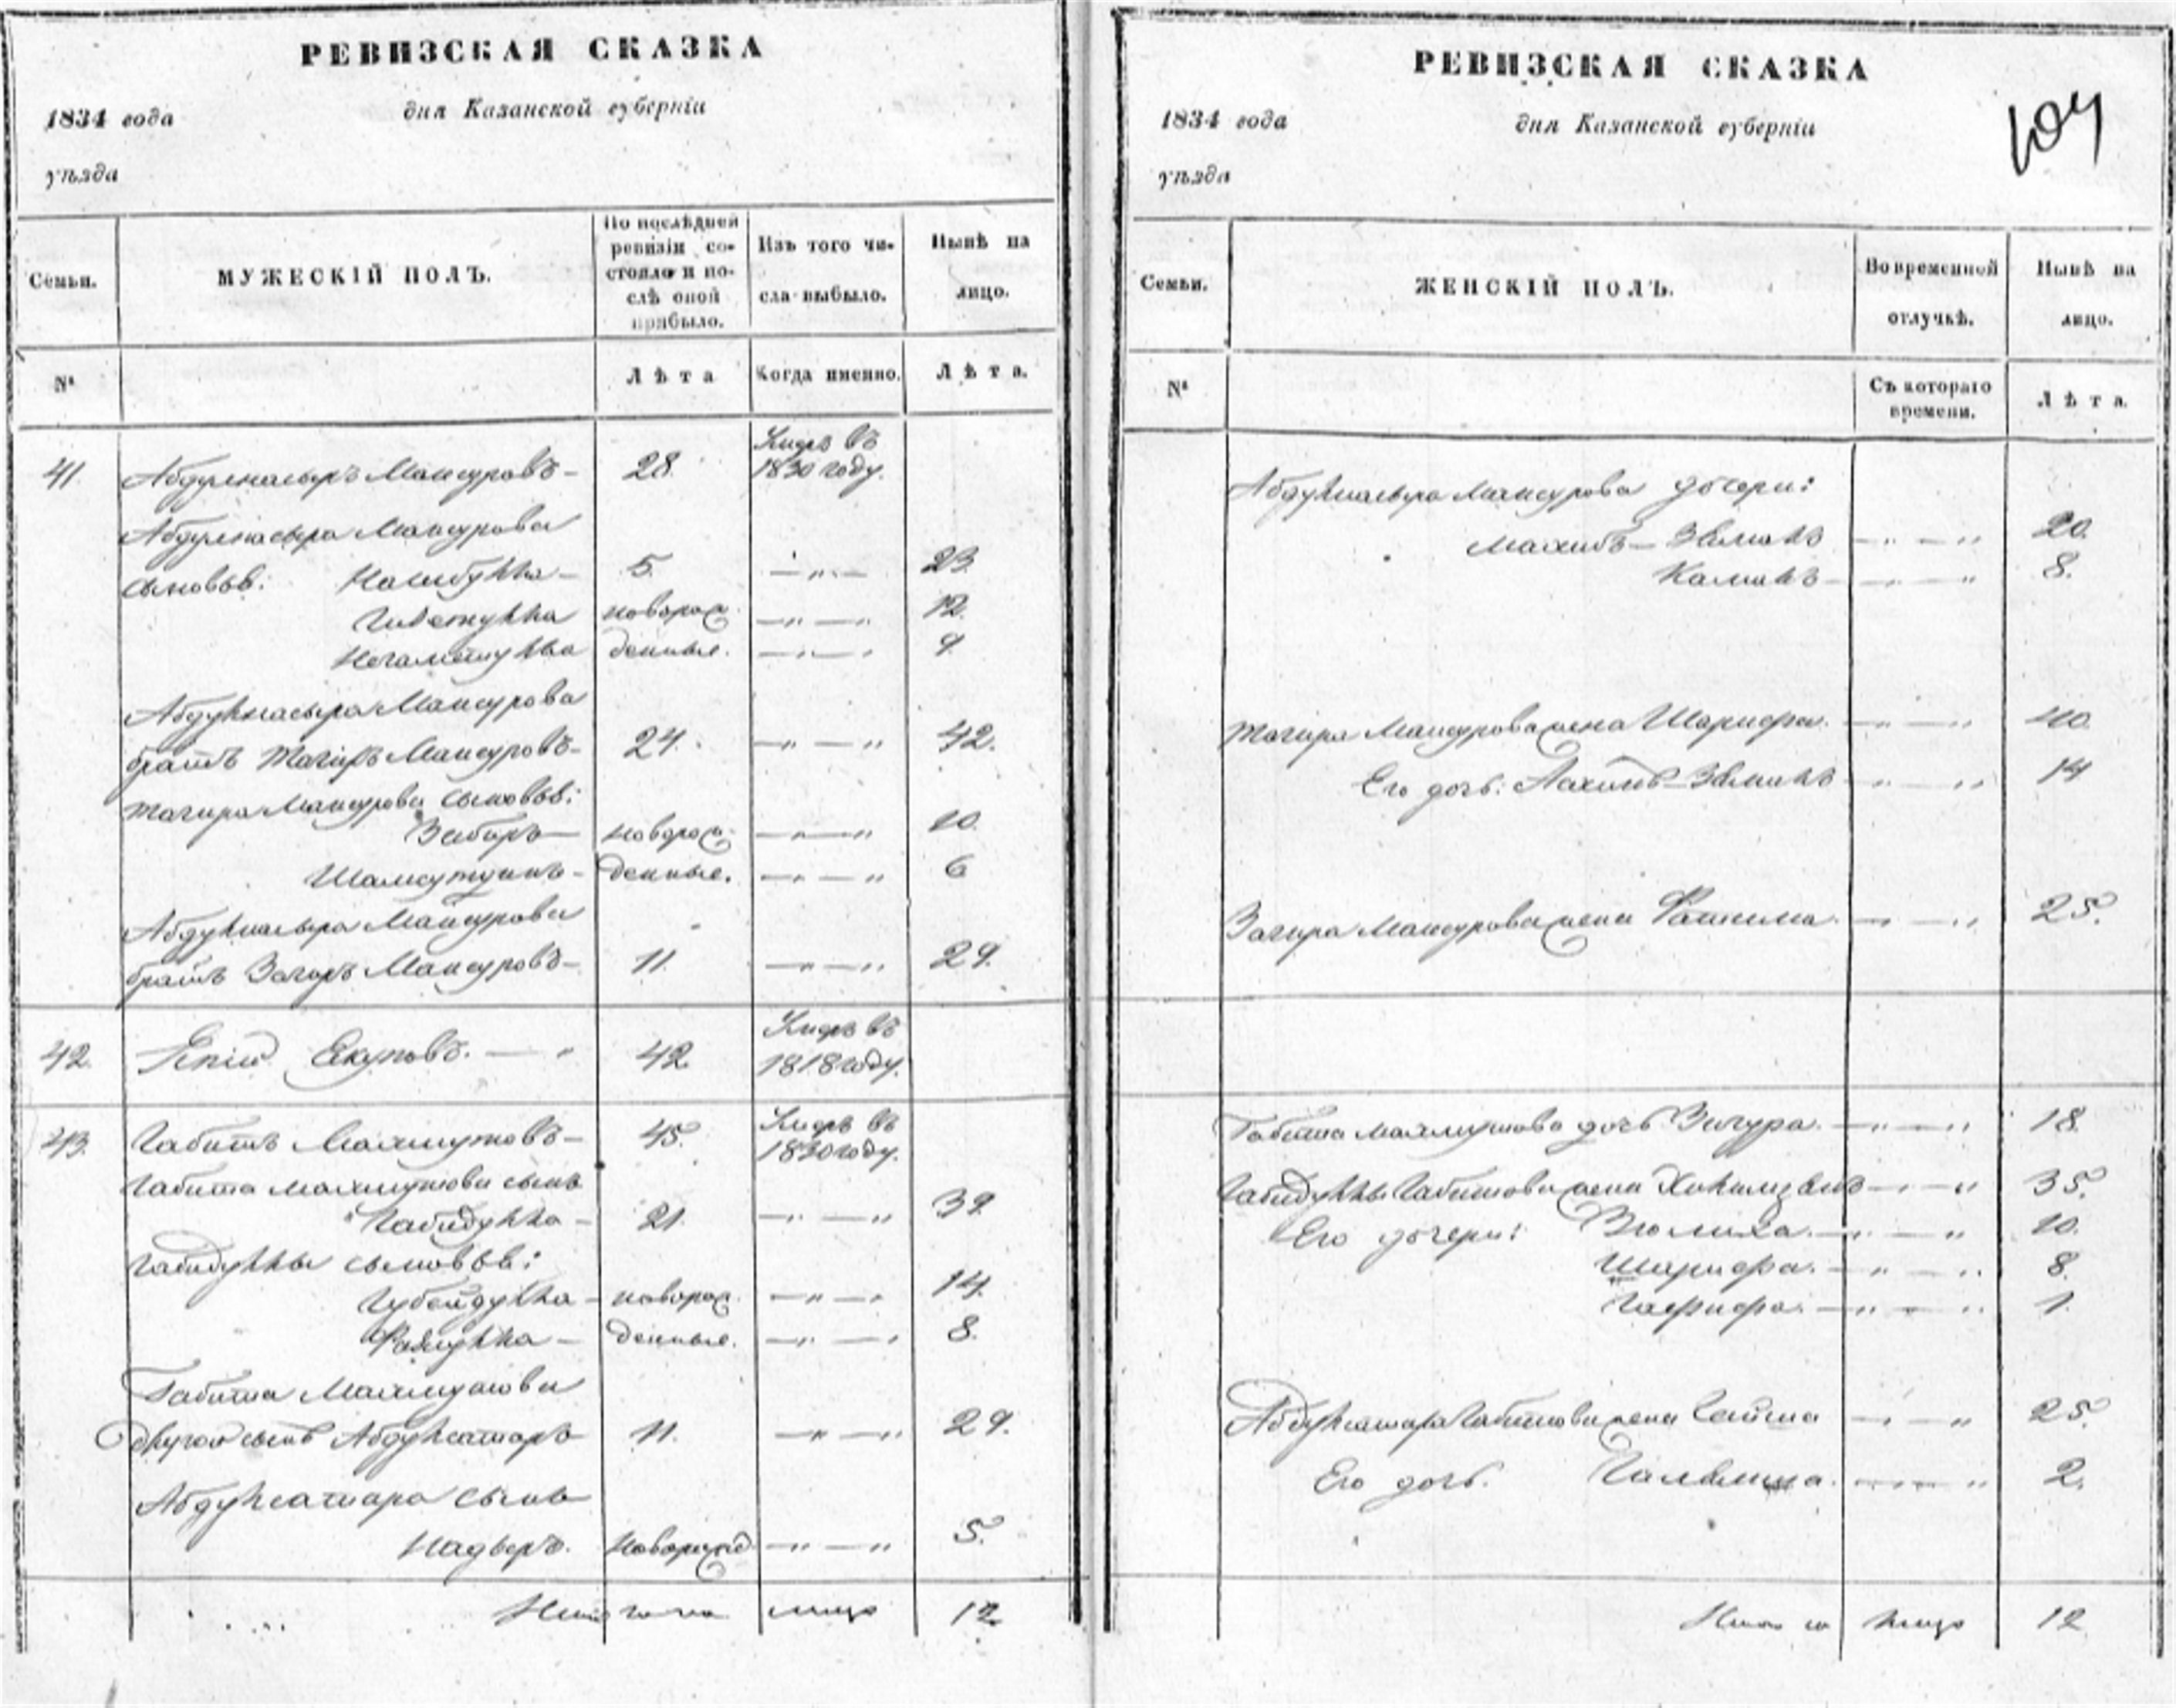 РЕВИЗСКАЯ СКАЗКА
1834 года
дня Казанской губерніи
уѣзда
Семьи.
МУЖЕСКІЙ ПОЛЪ.
По послѣдней
ревизіи со-
стояло и по-
слѣ оной
прибыло.
Изъ того чи-
сла выбыло.
Нынѣ на
лицо.
№
Лѣта
Когда именно.
Лѣта.
41. Абдулнасыръ Мансуровъ — 28. Умре въ
1830 году.
Абдулнасыра Мансурова
сыновья: Насибулла — 5. — „ — 23.
Гисметулла новорож — „ — „ 12.
Негаметулла денные. — „ — „ 9
Абдулнасыра Мансурова
братъ Тагиръ Мансуровъ — 24. — „ — „ 42.
Тагира Мансурова сыновья:
новорож — „ — „ 10.
Шамсутдинъ — денные. — „ — „ 6
Абдулнасыра Мансурова
братъ Загиръ Мансуровъ — 11. — „ — „ 29.
42. Екуповъ. — „ 42 Умре въ
1818 году.
43. Габитъ Махмутовъ — 45. Умре въ
1830 году.
Габита Махмутова сынъ
Габидулла — 21. — „ — „ 39.
Габидуллы сыновья:
Губейдулла — новорож. — „ — „ 14.
денные. — „ — „ 8.
Габита Махмутова
другой сынъ Абдулсатаръ 11. — „ — „ 29.
Абдулсатара сынъ
Надыръ. новорожд — „ — „ 5.
Итого на лицо 12
РЕВИЗСКАЯ СКАЗКА
1834 года
дня Казанской губерніи
уѣзда
Семьи.
ЖЕНСКІЙ ПОЛЪ.
Во временной
отлучкѣ.
Нынѣ на
лицо.
№
Съ котораго
времени.
Лѣта.
Абдулнасыра Мансурова дочери:
— „ — „ 20.
— „ — „ 8.
Тагира Мансурова жена Шарифа. — „ — „ 40.
Его дочь: — „ — „ 14
Загира Мансурова жена Фатима. — „ — „ 25.
Габита Махмутова дочь — „ — „ 18.
Габидуллы Габитова жена — „ — „ 35.
Его дочери: Зюлиха. — „ — „ 10.
Шарифа. — „ — „ 8.
— „ — „ 1.
Абдулсатара Габитова жена — „ — „ 25.
Его дочь. — „ — „ 2.
Итого на лицо 12